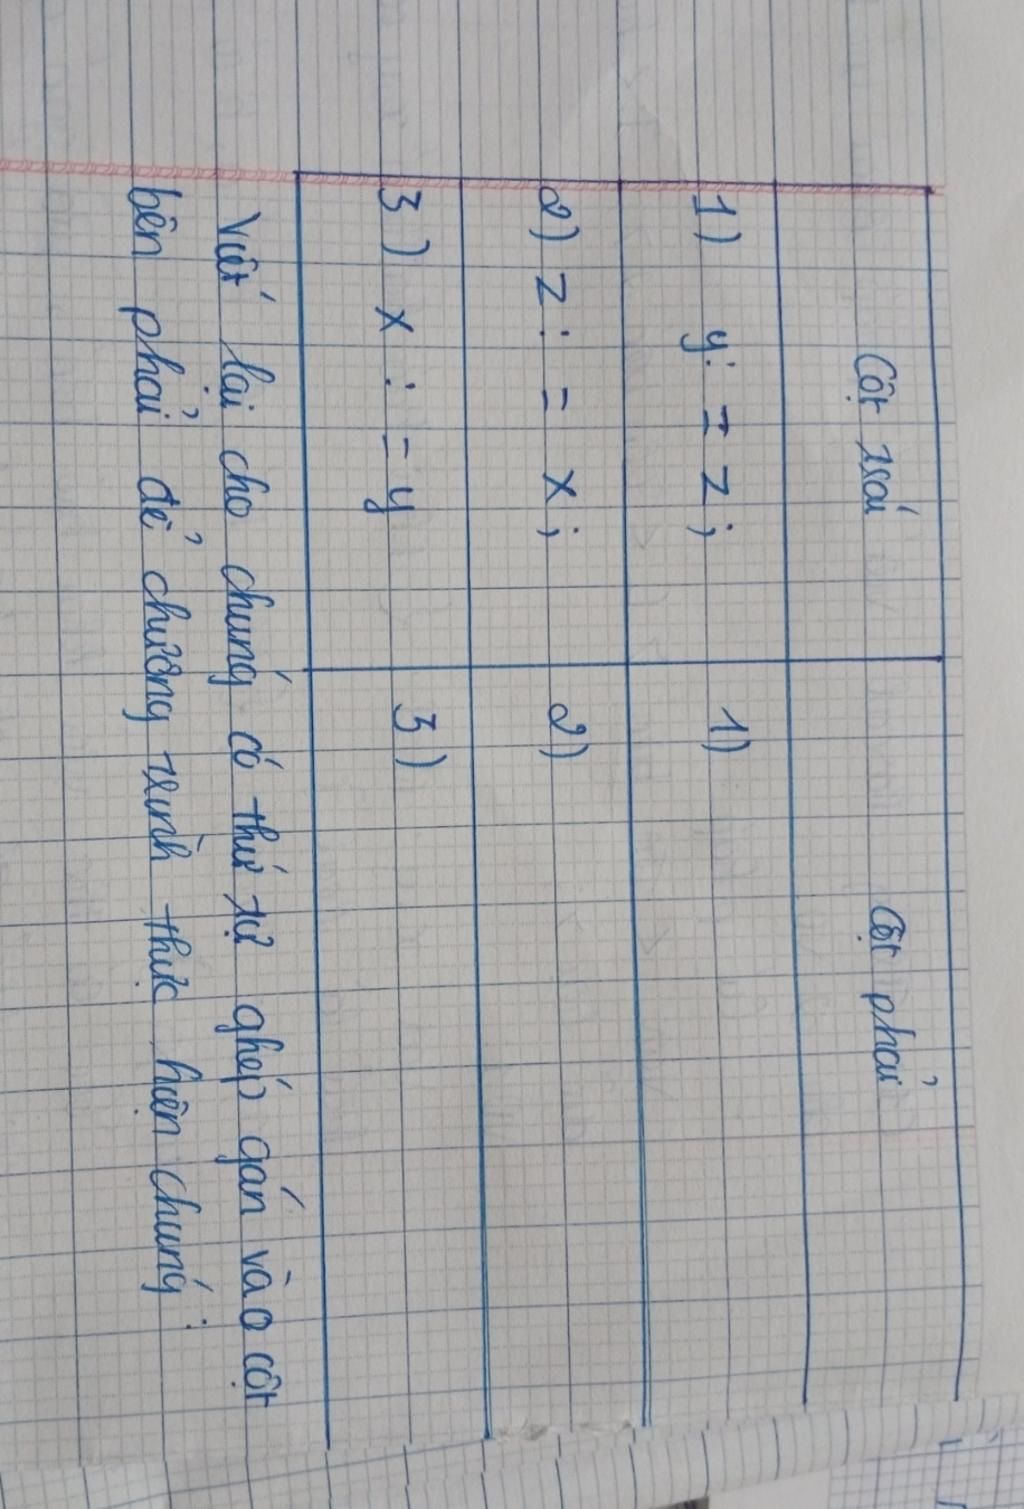 Cột trái Cột phải
1) y: = z; 1)
2) z : = x; 2)
3) x : = y 3)
Viết lại cho chúng có thứ tự ghép gán vào cột
bên phải để chương trình thực hiện chúng :